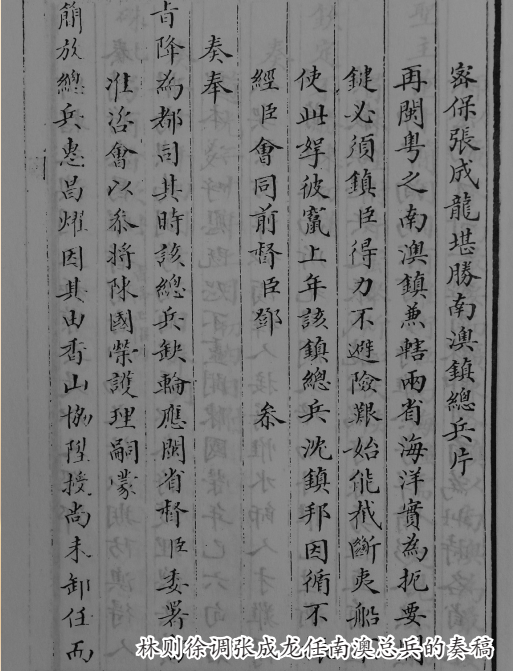 密保張成龍堪勝南澳鎮總兵片
再閩粵之南澳鎮兼轄兩省海洋實為扼要
鍵必須鎮臣得力不避險艱始能截斷夷船
使此拏彼竄上年該鎮總兵沈鎮邦因循不
經臣會同前督臣鄧 叅
奏奉
旨降為都司其時該總兵缺輪應閩省督臣委署
准咨會以叅將陳國榮護理嗣蒙
簡放總兵惠昌燿因其由香山協陞授尚未卸任而
林则徐调张成龙任南澳总兵的奏稿